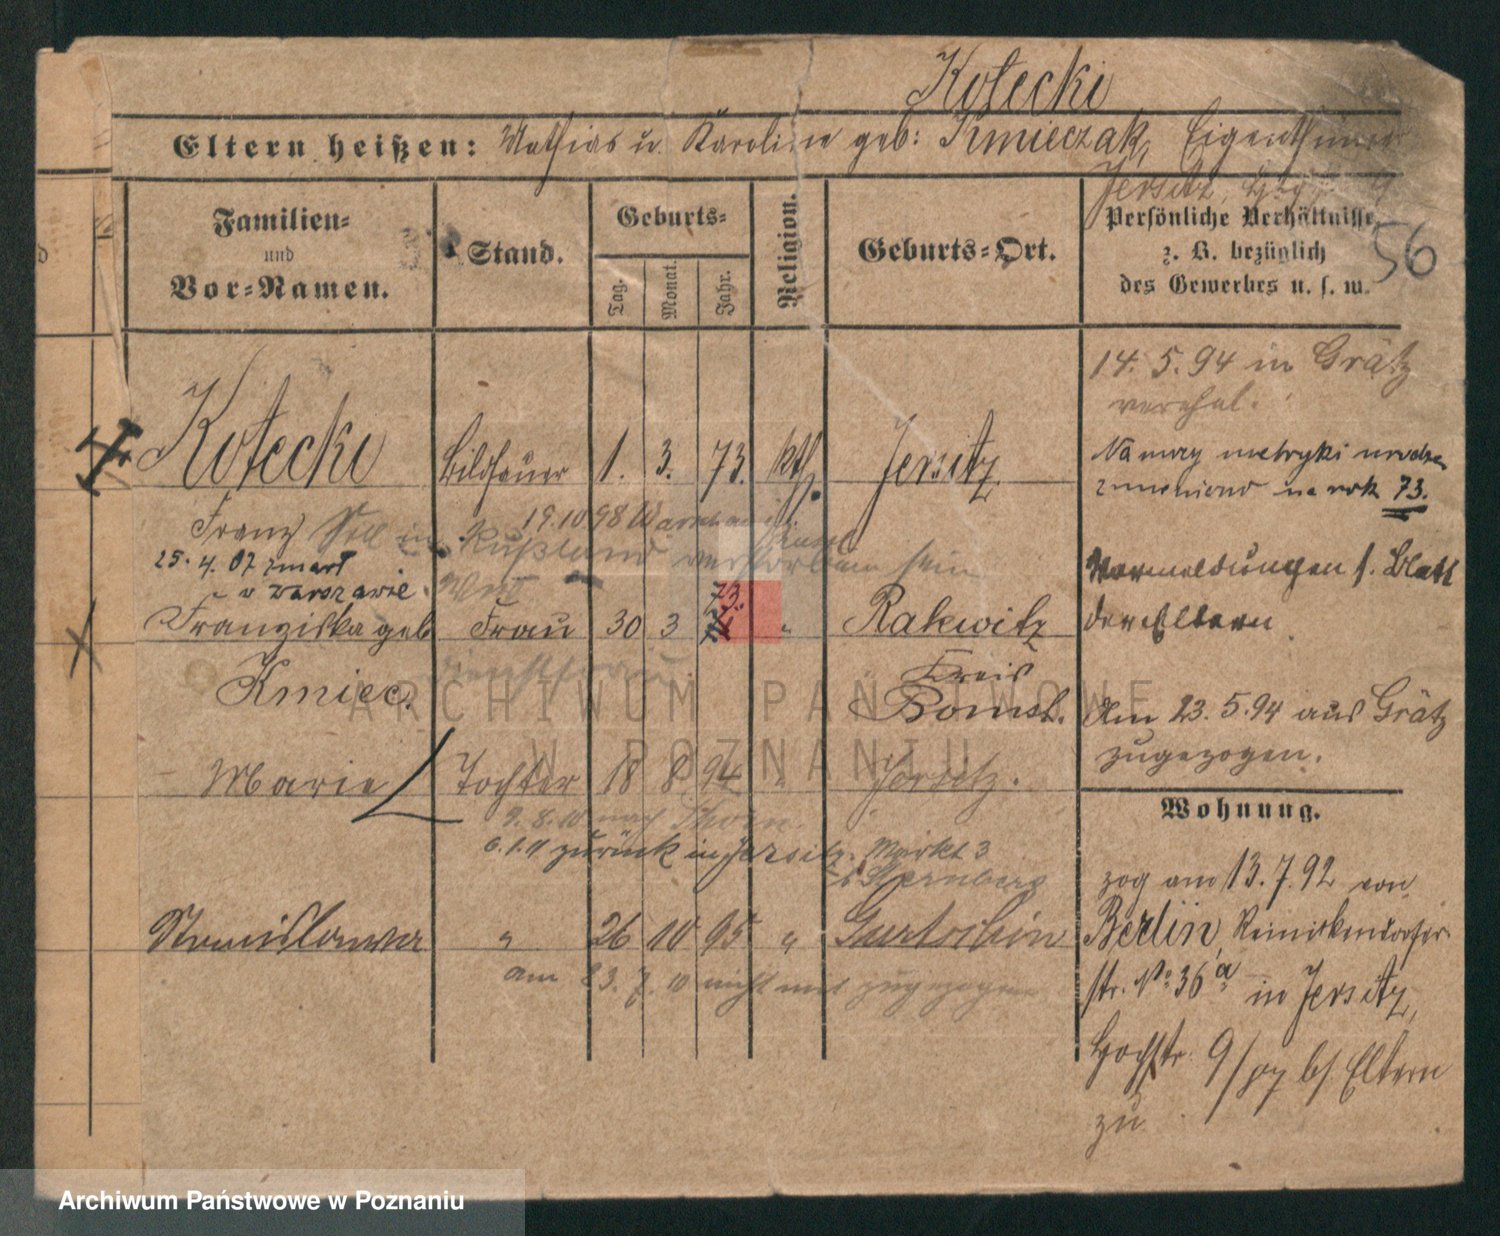 Kotecki
Eltern heißen: Mathias u. Karoline geb: Kmieczak, Eigenthümer
Jersitz,
Familien-
und
Vor-Namen.
Stand.
Geburts-
Tag.
Monat.
Jahr.
Religion.
Geburts-Ort.
Persönliche Verhältnisse,
z. B. bezüglich
des Gewerbes u. s. w.
56
14. 5. 94 in Grätz
verehel.
Kotecki Bildhauer 1. 3. 73. kth. Jersitz
Na mocy metryki urodze
zmieniono na rok 73.
Franz Soll in Rußland verstorben sein
19.10 98 Warschau
25. 4. 07 zmarł
w Warszawie.
Vormeldungen s. Blatt
der Eltern
Franziska geb Frau 30 3 73. 74 " Rakwitz
Kmiec. Kreis
Bomst.
Am 23. 5. 94 aus Grätz
zugezogen.
Marie Tochter 18 8 94 " Jersitz.
9. 8. 10 nach Thorn.
6. 1. 11 zurück in Jersitz, Markt 3
b. Sternberg
Wohnung.
zog am 13. 7. 92 von
Berlin, Reinickendorfer-
str. No 36a in Jersitz,
Hochstr. 9/ bs. Eltern
zu
Stanislawa " 26 10 95 " Gurtschin
am 23. 7. 10 nicht mit zugezogen
ARCHIWUM PAŃSTWOWE
W POZNANIU
Archiwum Państwowe w Poznaniu